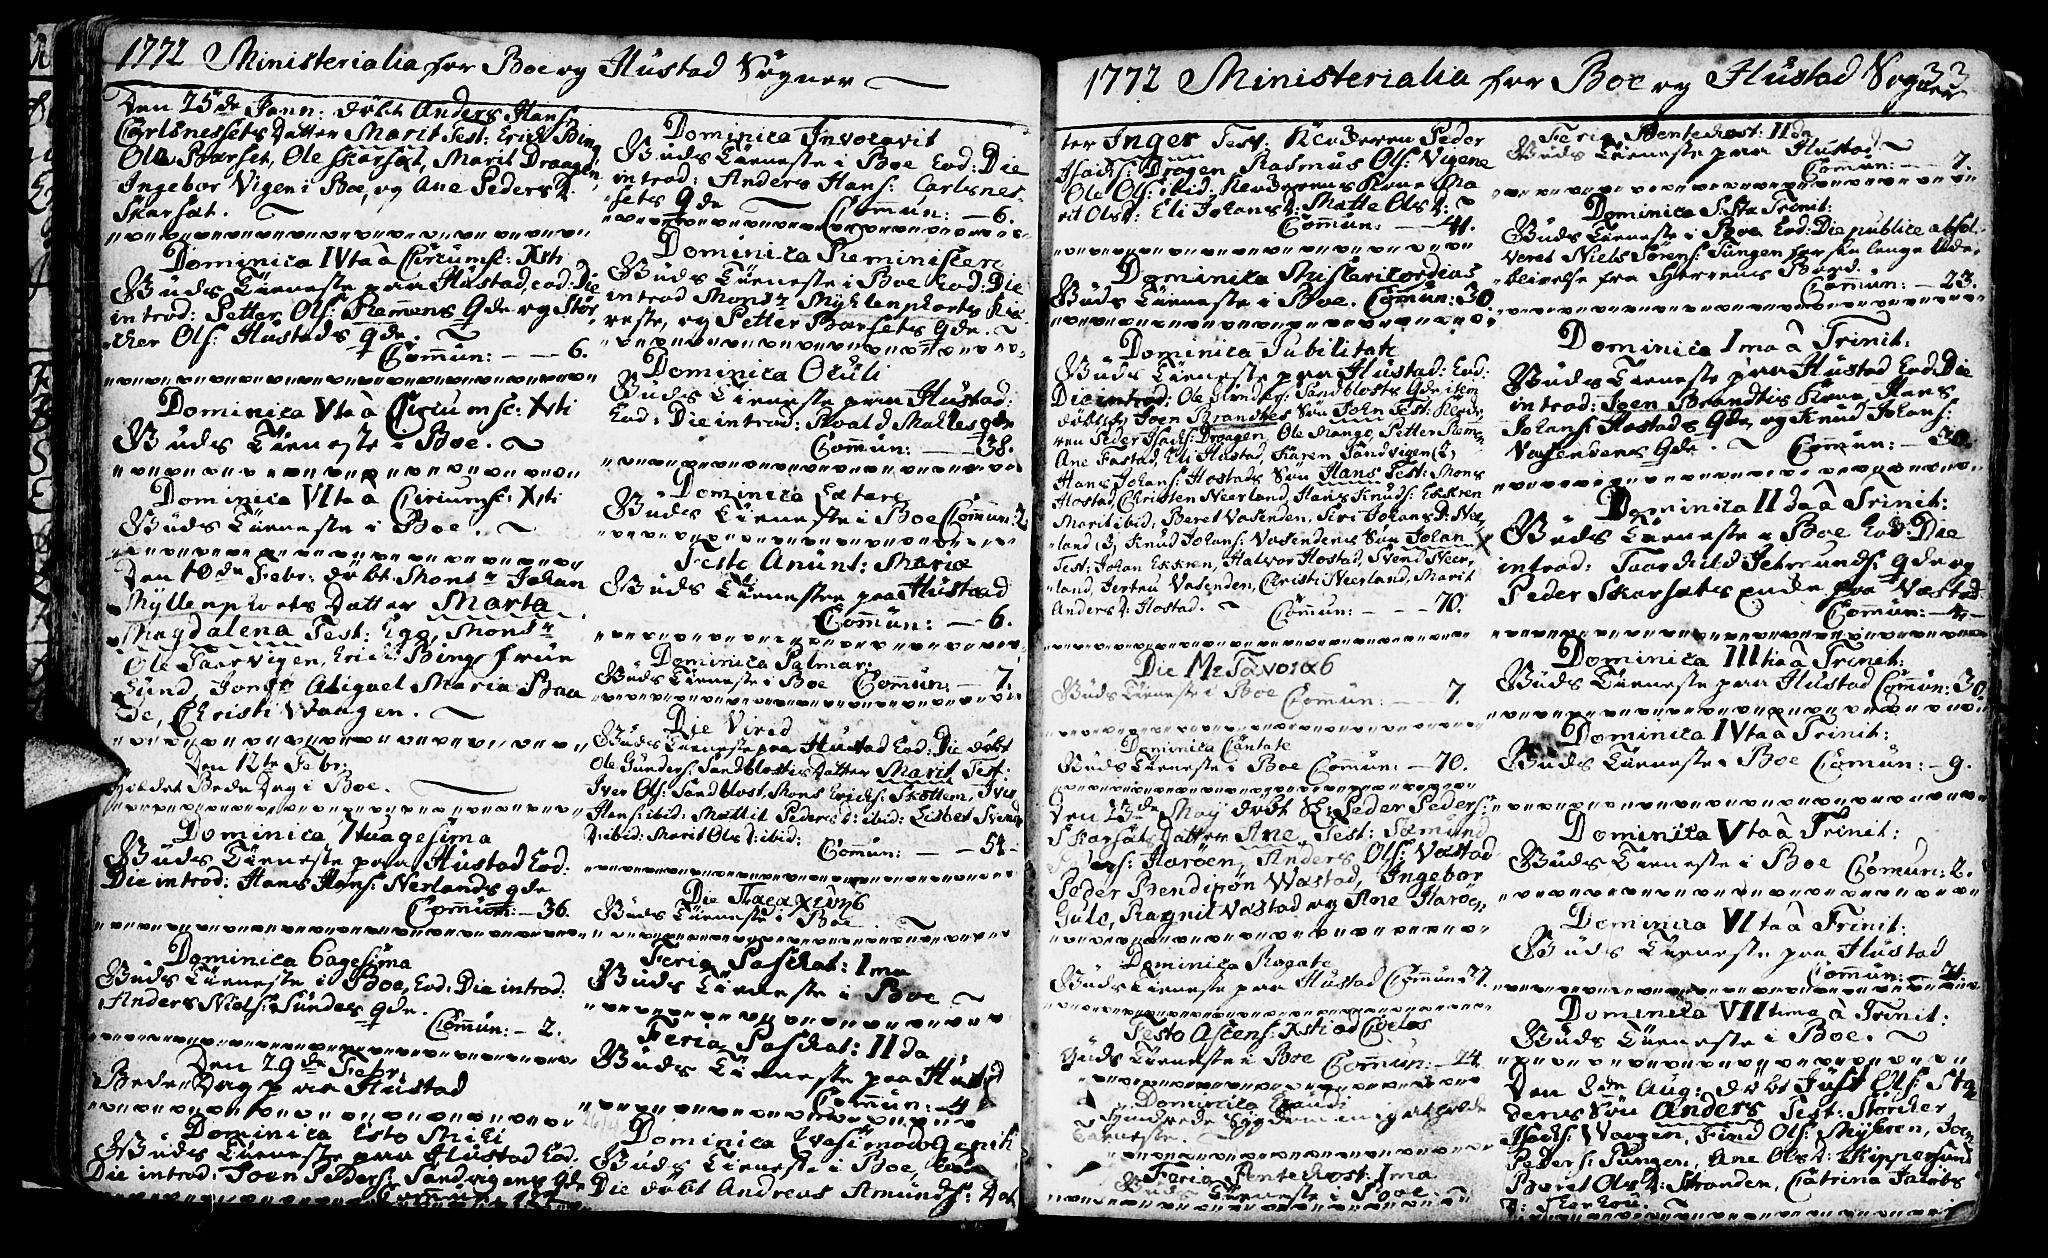 1772 Ministerialia for Boe og Hustad Sogner
Den 25de Jann: døbt Anders Hans:
Carlsnessets Datter Marit Test: Erich Bing
Ole Barset, Ole Skarsæt, Marit Draagen,
Ingebor Vigen i Boe, og Ane Peders D:
Skarsæt.
Dominica IVta à Circumsc: Xsti
Guds Tieneste paa Hustad, eod: Die
introd: Petter Ols: Remmens Qde og Stør
cher Ols: Hustads qde.
Com̄un: — 6.
Dominica Vta à Circumsc: Xsti
Guds Tieneste i Boe.
Dominica VIta à Circumsc: Xsti
Guds Tieneste i Boe.
Den 10de Febr: døbt Mons: Johan
Myllenphorts Datter Marta
Magdalena Test: Egp, Mons:
Ole Taarvigen, Erich Bing,
Sund, Abigael Maria Baa
de, Christi Waagen.
Den 12te Febr:
Holdet Bede Dag i Boe.
Dominica 7tuagesima
Guds Tieneste paa Hustad Eod:
Die introd: Hans Hans: Nerlands qde
Com̄un: — 36.
Dominica 6agesima
Guds Tieneste i Boe, Eod: Die introd:
Anders Niels: Sundes qde.
Com̄un: — 2.
Den 29de Febr,
Bede Dag paa Hustad
Dominica Esto Mihi
Guds Tieneste paa Hustad Eod.
Die introd: Joen Peders: Sandvigens qde
Dominica Invocavit
Guds Tieneste i Boe Eod: Die
introd: Anders Hans: Carlsnes-
sets Qde Com̄un: — 6.
Dominica Reministere
Guds Tieneste i Boe Eod: Die
introd Mons: Myhlenphorts Kie
reste, og Petter Barsets Qde.
Dominica Oculi
Guds Tieneste paa Hustad:
Eod: Die introd: Roald Malles qde
Com̄un: — 38.
Dominica Lætare
Guds Tieneste i Boe Com̄un: 2
Festo Anunt: Mariæ
Guds Tieneste paa Hustad
Com̄un: — 6.
Dominica Palmar:
Guds Tieneste i Boe Com̄un: — 7.
Die Virid
Guds Tieneste paa Hustad Eod: Die døbt
Ole Gunders: Sandblostis Datter Marit Test:
Iver Ols: Sandblost, Mons Erichs: Skottem, Iver
Hans: ibid: Mallit Peders D: ibid: Lisbet Svends
D: ibid: Marit Ols D: ibid: Com̄un: — 54-
Die
Guds Tieneste i Boe.
Feria Paschat: Ima
Guds Tieneste i Boe
Feria Paschat: IIda
Guds Tieneste paa Hustad
Com̄un: — 4
Dominica Qvasimodogeniti
Guds Tieneste i Boe, Eod
Die døbt Andreas Amunds: Dat
1772 Ministerialia for Boe og Hustad Sogner
33
ter Inger Test: Klockeren Peder
Isachs: Drogen Rasmus Ols: Vigene
Ole Ols: ibid: Klockerens Kone Ma
rit Ols D: Eli Johans D: Matte Ols D:
Com̄un: — 41.
Dominica Misericordias
Guds Tieneste i Boe. Com̄un: 30
Dominica Jubilate
Guds Tieneste paa Hustad: Eod:
Die introd: Ole Gunders: Sandblosts Qde item
døbt Joen Brandtes Søn John Test: Klocke
ren Peder Isachs: Draagen, Ole Mango, Petter Remen
Ane Fastad, Eli Hustad, Karen Sandvigen (2)
Hans Johans: Hostads Søn Hans Test: Mons
Hostad, Christen Neerland, Hans Knuds: Ekkren
Marit ibid, Beret Vasenden, Siri Johans D: Nee
land (3) Knud Johans: Vasendens Søn Johan
Test: Johan Ekkren, Halvor Hostad, Svend Neer
land, Jertru Vasenden, Christi Neerland, Marit
Anders D: Hostad. Com̄un: — 70.
Die
Guds Tieneste i Boe Com̄un: — 7.
Dominica Cantate
Guds Tieneste i Boe Com̄un: — 70.
Den 23de May døbt Peder Peders:
Skarsæts Datter Ane, Test:
Harøen, Anders Ols: Vastad
Peder Bendixøn Wastad, Ingebor
Gule, Ragnil Vastad og Ane Harøen
Dominica Rogate
Guds Tieneste paa Hustad Com̄un 27.
Festo Ascens: Xsti ad Coelos
Guds Tieneste i Boe Com̄un: — 24
Dominica Exaudi
Tieneste.
Feria Pentechost: Ima
Guds Tieneste i Boe.
Feria Pentechost: IIda
Guds Tieneste paa Hustad.
Com̄un: — 7.
Dominica S:Sta Trinit:
Guds Tieneste i Boe Eod: Die publice absol
veret Niels Sørens: Tungen for sin lange Ude-
blivelse fra Herrens Bord.
Com̄un: — 23.
Dominica Ima à Trinit:
Guds Tieneste paa Hustad Eod: Die
introd: Joen Brandtis Kone, Hans
Johans: Hostads Qde, og Knud Johans:
Vasendens Qde. Com̄un: — 30.
Dominica IIda à Trinit:
Guds Tieneste i Boe Eod: Die
introd: Taarkild Jetmunds: qde og
Peder Skarsæts qvinde fra Vastad
Com̄un: — 4-
Dominica IIItia à Trinit:
Guds Tieneste paa Hustad Com̄un: 30
Dominica IVta à Trinit:
Guds Tieneste i Boe Com̄un: — 9.
Dominica Vta à Trinit:
Guds Tieneste i Boe Com̄un: 2.
Dominica VIta à Trinit:
Guds Tieneste paa Hustad
Com̄un: — 21.
Dominica VIItima à Trinit:
Guds Tieneste i Boe.
Den 8de Aug: døbt Just Ols: Sta
dens Søn Anders Test: Størcher
Isachs: Waagen, Find Ols: Myhren, Joen
Peders: Tungen, Ane Ols D: Kippersund
Beret Ols D: Stranden, Catrina Jacobs
D: